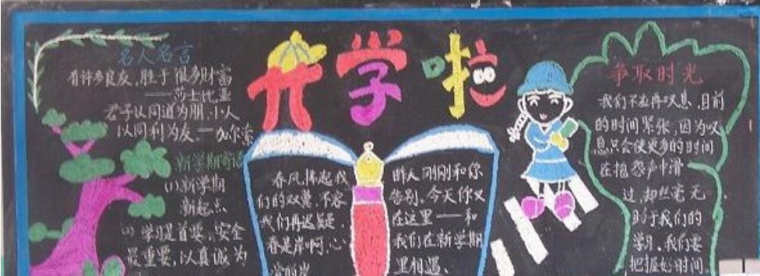 开学啦
名人名言
有许多良友，胜于很多财富
——莎士比亚
君子以同道为朋，小人
以同利为友。——
新学期寄语
(1)新学期
新起点
(2)学习是首要，安全
最重要，以真诚为
春风捧起我
们的双翼，不容
我们再迟疑，
春是岸啊，心
昨天刚刚和你
告别，今天你又
在这里——和
我们在新学期
里相遇。
争取时光
我们不应再叹息，目前
的时间紧张，因为叹
息只会使更多的时间
在抱怨声中滑
过，却丝毫无
助于我们的
学习，我们要
把握好时间